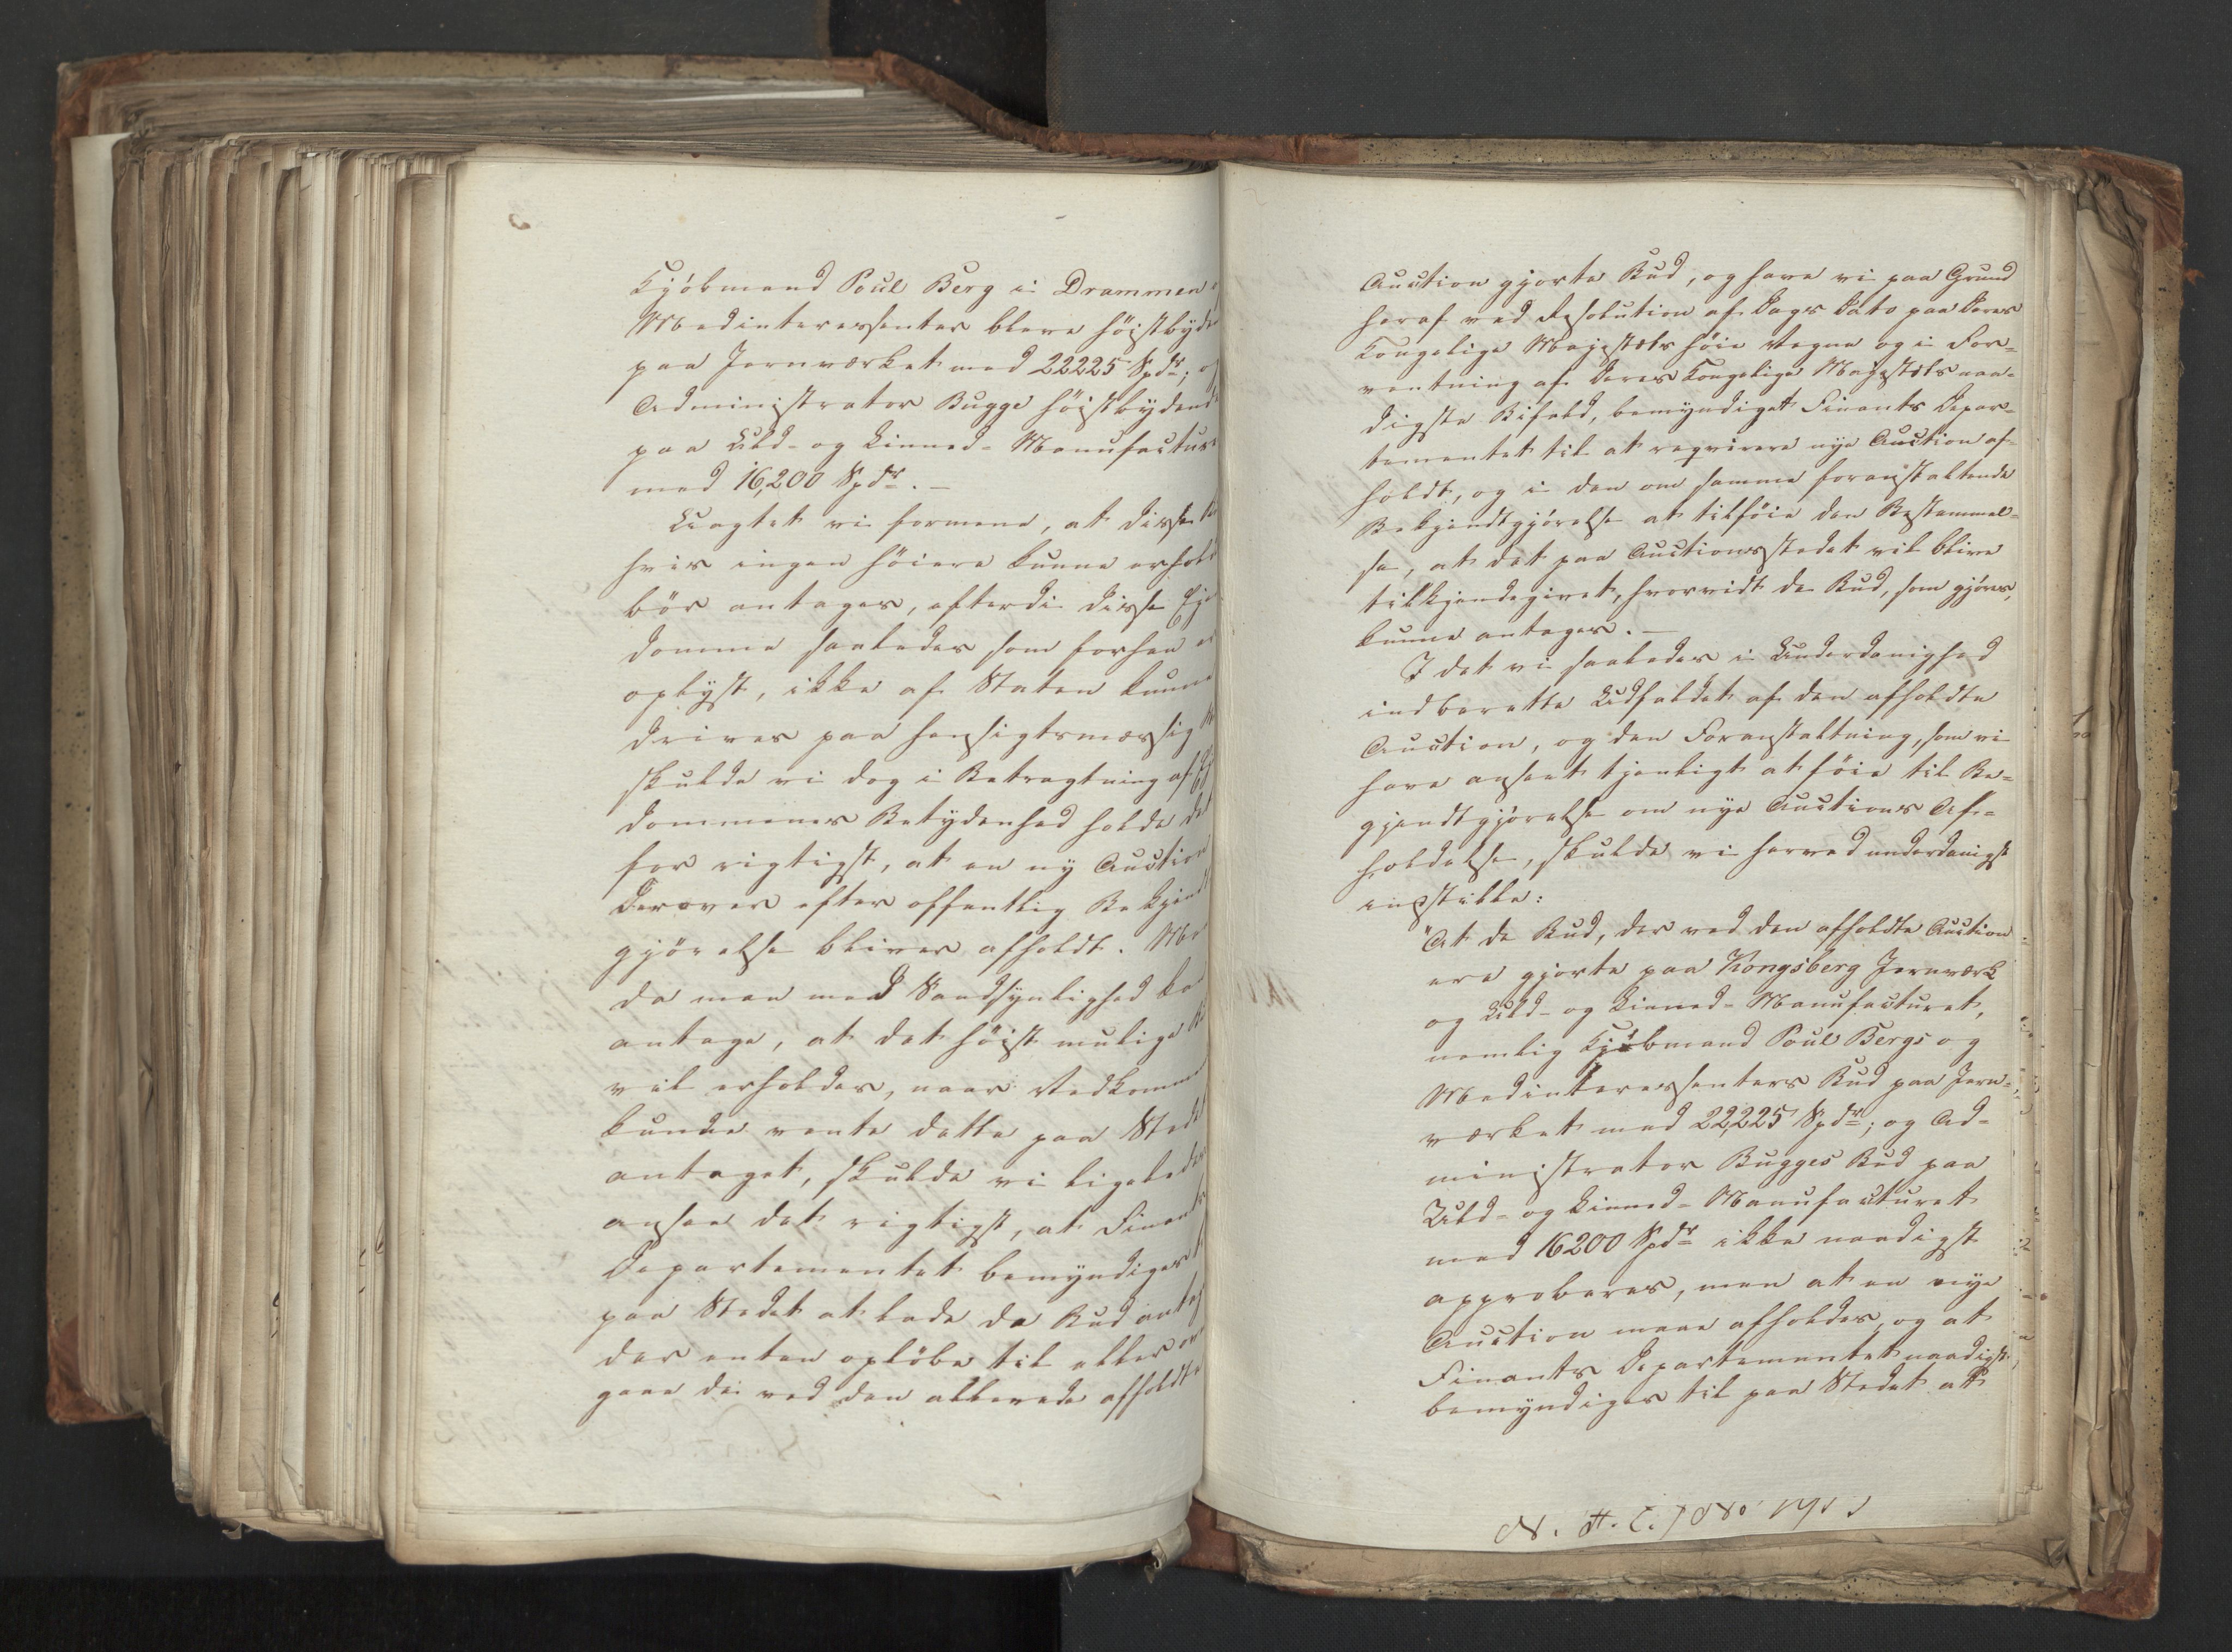 Kjöbmand Poul Berg i Drammen
Medinteressenter bleve höistbyde
paa Jernværket med 22225 Spdr; og
Administrator Bugge höistbydende
paa Uld- og Linned-Manufactur
med 16,200 Spdr. –
Uagtet vi formene, at disse
hvis ingen höiere kunne erhold
bör antages, efterdi disse Eje
domme saaledes som forhen er
oplyst, ikke af Staten kunne
drives paa hensigtsmæssig
skulde vi dog i Betragtning af
dommenes Betydenhed holde det
for rigtigst, at en ny Auction
derover efter offentlig Bekjendt
gjörelse bliver afholdt. Men
da man med Sandsynlighed kan
antage, at det höist mulige
vil erholdes, naar Vedkomme
kunde vente dette paa Stedet
antaget, skulde vi ligeledes
ansee det rigtigst, at Finants
Departementet bemyndiges
paa Stedet at lade de Bud antag
der enten oplöbe til eller over
gaae de ved den allerede afholdte
Auction gjorte Bud, og have vi paa Grund
heraf ved Resolution af Dags Dato paa Deres
Kongelige Majestæts höie Vegne og i For-
ventning af Deres Kongelige Majestæts naa-
digste Bifald, bemyndiget Finants Depar-
tementet til at reqvirere nye Auction af-
holdt, og i den om samme foranstaltende
Bekjendtgjörelse at tilföie den Bestemmel-
se, at det paa Auctionsstedet vil blive
tilkjendegivet, hvorvidt de Bud, som gjöres,
kunne antages. –
I det vi saaledes i Underdanighed
indberette Udfaldet af den afholdte
Auction, og den Foranstaltning, som vi
have anseet tjenligt at föie til Be-
gjendtgjörelse om nye Auctions Af-
holdelse, skulde vi herved underdanigst
indstille:
"At de Bud, der ved den afholdte Auction
ere gjorte paa Kongsberg Jernværk
og Uld- og Linned-Manufacturet,
nemlig Kjöbmand Poul Bergs og
Medinteressenters Bud paa Jern-
værket med 22,225 Spdr; og Ad-
ministrator Bugges Bud paa
Uld- og Linned-Manufacturet
med 16200 Spdr ikke naadigst
approberes, men at en nye
Auction maae afholdes, og at
Finants Departementet naadigst
bemyndiges til paa Stedet at